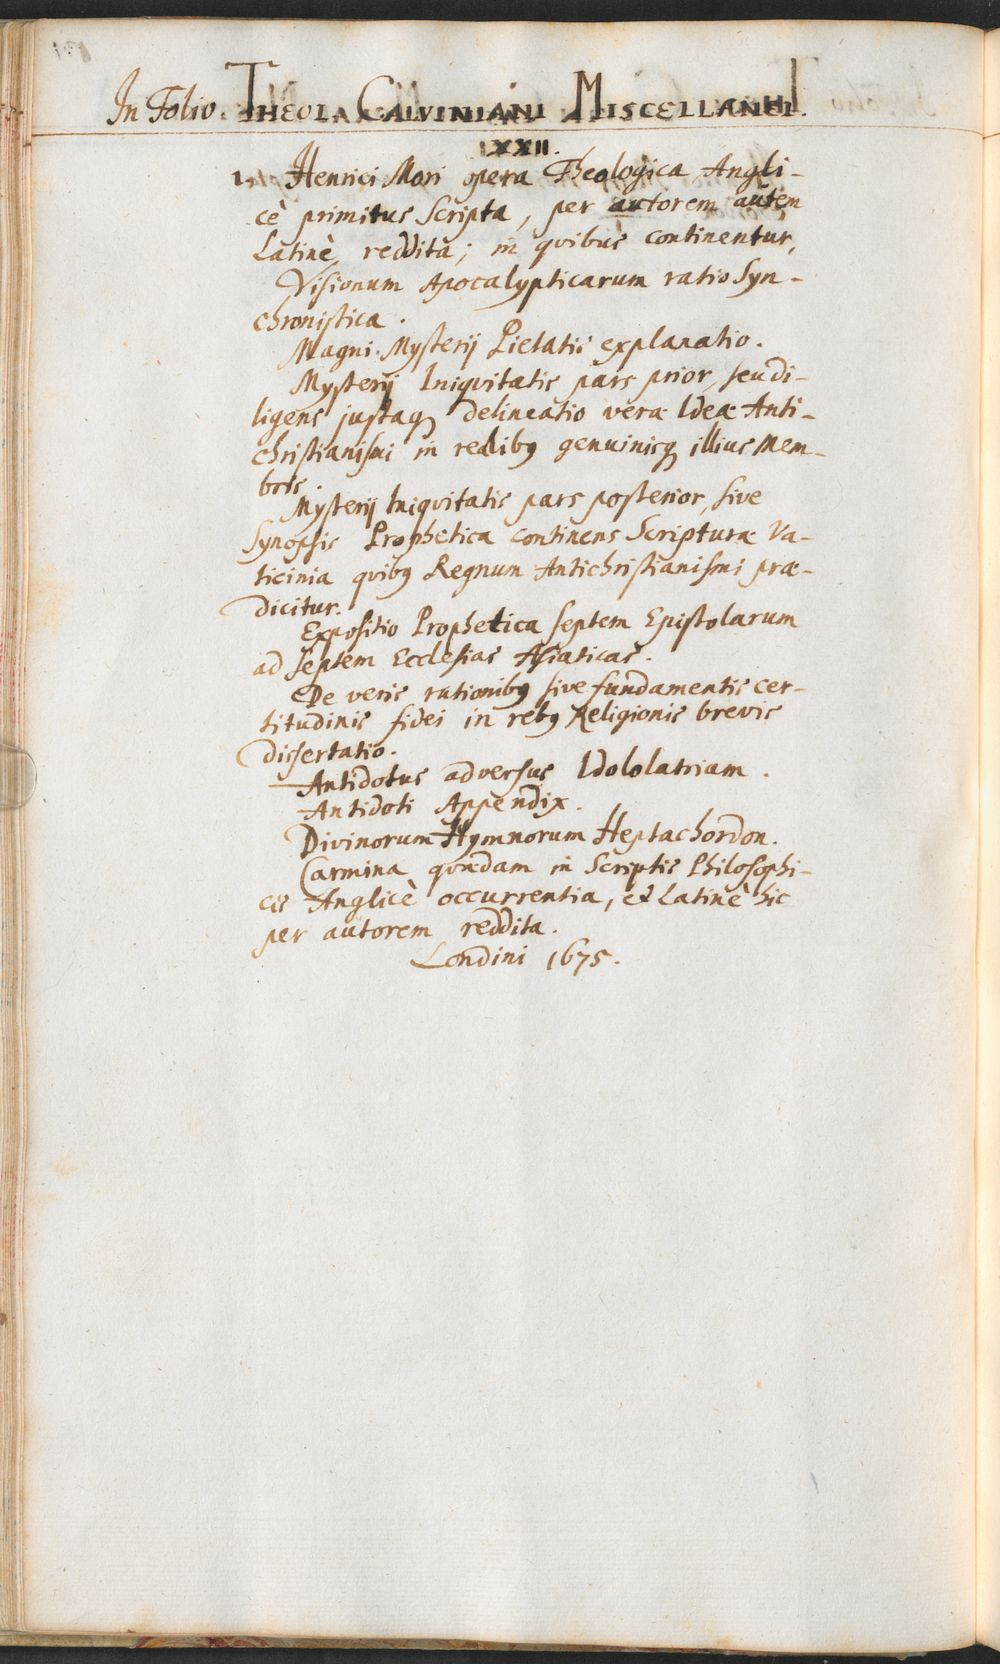 In Folio. THEOLA CALVINIANI MISCELLANEI.
LXXII.
1. Henrici Mori opera Theologica Angli-
cè primitus Scripta, per autorem autem
Latinè reddita; in quibus continentur,
Visionum Apocalypticarum ratio Syn-
chronistica.
Magni Mysterij Pietatis explanatio.
Mysterij Iniquitatis pars prior, seu di-
ligens justaq delineatio veræ Ideæ Anti-
christianismi in realibq genuinisq illius Mem-
bris.
Mysterij Iniquitatis pars posterior, sive
Synopsis Prophetica continens Scripturæ Va-
ticinia quibq Regnum Antichristianismi præ-
dicitur.
Expositio Prophetica septem Epistolarum
ad septem Ecclesias Asiaticas.
De veris rationibq sive fundamentis cer-
titudinis fidei in rebq Religionis brevis
dissertatio.
Antidotus adversus Idololatriam.
Antidoti Appendix.
Divinorum Hymnorum Heptachordon.
Carmina quædam in Scriptis Philosophi-
cis Anglicè occurrentia, et Latinè hic
per autorem reddita.
Londini 1675.